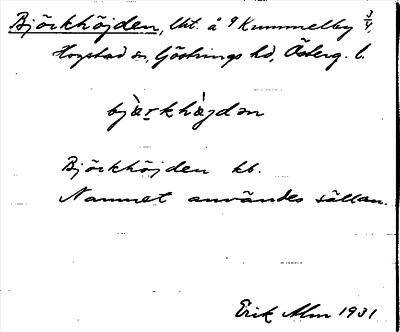 Björkhöjden, lht. å 9 Kummelby 3/4,
Hogstad sn, Göstrings hd, Österg. l.
bjæ̀rkhæ̀jdən
Björkhöjden kb.
Namnet användes sällan.
Erik Alm 1931